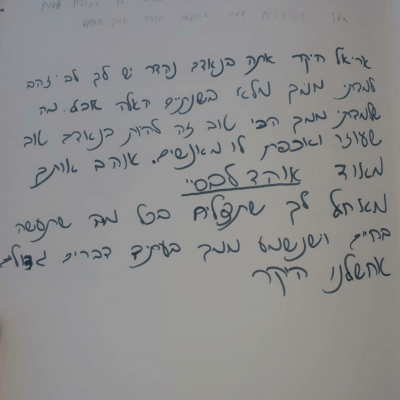 אריאל היקר אתה בנאדם נהדר יש לך לב זהב
למדתי ממך מלא בשנתיים האלה אבל מה
שלמדתי ממך הכי טוב זה להיות בנאדם טוב
שעוזר ואוכפת לו מאנשים. אוהב אותך
מאוד אוהד לבסיי
מאחל לך שתצליח בכל מה שתעשה
בחיים ושנשמע ממך בעתיד דברים גדולים
אחשלנו היקר